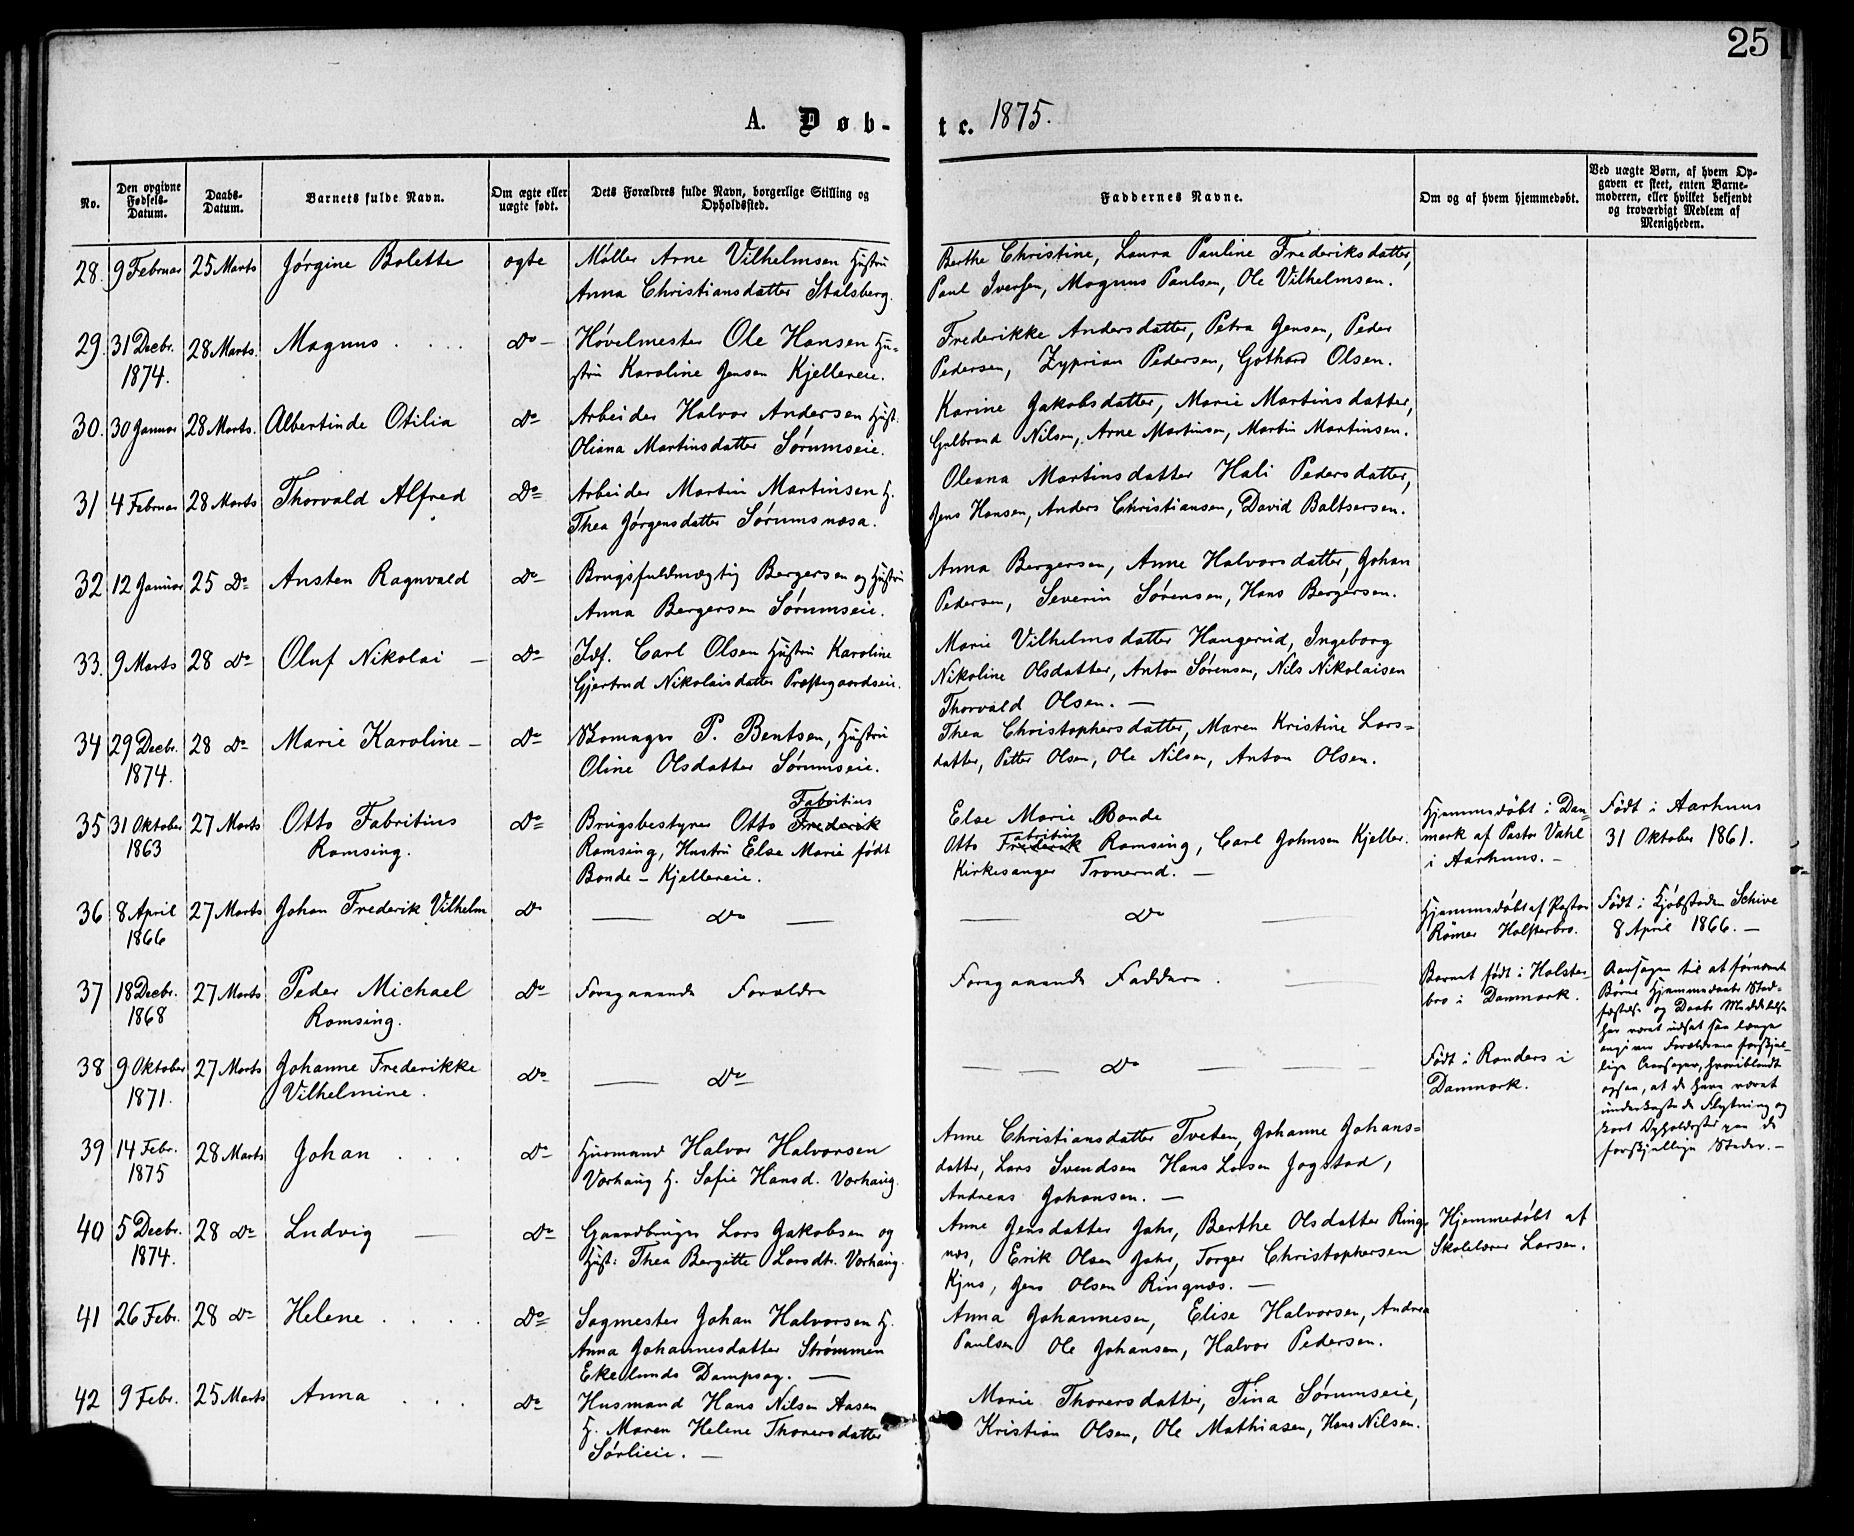 25
A. Døb-
te. 1875.
No.
Den opgivne Fødsels-Datum.
Daabs-Datum.
Barnets fulde Navn.
Om ægte eller uægte født.
Dets Forældres fulde Navn, borgerlige Stilling og Opholdssted.
Faddernes Navne.
Om og af hvem hjemmedøbt.
Ved uægte Børn, af hvem Opgaven er skeet, enten Barnemoderen, eller hvilket bekjendt og troværdigt Medlem af Menigheden.
28. 9 Februar 25 Marts Jörgine Bolette ægte Møller Arne Vilhelmsen Hustru
Anna Christiansdatter Stalsberg.
Berthe Christine, Laura Pauline Frederiksdatter,
Paul Iversen, Magnus Paulsen, Ole Vilhelmsen.
29 31 Decbr. 28 Marts. Magnus . . . . Do – Høvelmester Ole Hansen Hu-
1874. stru Karoline Jensen Kjellereie.
Frederikke Andersdatter, Petra Jensen, Peder
Pedersen, Zyprian Pedersen, Gothard Olsen.
30. 30 Januar 28 Marts. Albertinde Otilia Do Arbeider Halvor Andersen Hust.
Oliana Martinsdatter Sørumseie.
Karine Jakobsdatter, Marie Martinsdatter,
Gulbrand Nilsen, Arne Martinsen, Martin Martinsen.
31 4 Februar 28 Marts Thorvald Alfred Do Arbeider Martin Martinsen H.
Thea Jørgensdatter Sørumsnæsa.
Oleana Martinsdatter Hali Pedersdatter,
Jens Hansen, Anders Christiansen, David Baltsersen.
32 12 Januar 25 Do Ansten Ragnvald Do Brugsfuldmægtig Bergersen og Hustru
Anna Bergersen Sørumseie.
Anna Bergersen, Anne Halvorsdatter, Johan
Pedersen, Severin Sørensen, Hans Bergersen.
33. 9 Marts 28 Do Oluf Nikolai – Do Idf. Carl Olsen Hustru Karoline
Gjertrud Nikolaisdatter Præstegaardseie.
Marie Vilhelmsdatter Haugerud, Ingeborg
Nikoline Olsdatter, Anton Sørensen, Nils Nikolaisen
Thorvald Olsen. –
34 29 Decbr. 28 Do Marie Karoline – Do Skomager P. Bentsen, Hustru
1874. Oline Olsdatter Sørumseie.
Thea Christophersdatter, Maren Kristine Lars-
datter, Petter Olsen, Ole Nilsen, Anton Olsen.
35 31 Oktober 27 Marts Otto Fabritius Do Brugsbestyrer Otto Frederik Fabritius
1863 Romsing. Romsing, Hustru Else Marie født
Bonde – Kjellereie.
Else Marie Bonde
Otto Frederik Fabritius Romsing, Carl Johnsen Kjeller.
Kirkesanger Tronerud. –
Hjemmedøbt i Dan-
mark af Pastor Vahl
i Aarhuus. –
Født i Aarhuus
31 Oktober 1861.
36 8 April 27 Marts Johan Frederik Vilhelm Do – Do –
1866
– Do –
Hjemmedøbt af Pastor
Römer Holsterbro.
Født i Kjøbstaden Schive
8 April 1866. –
37 18 Decbr. 27 Marts Peder Michael Do Foregaaende Forældre
1868 Romsing.
Foregaaende Faddere.
Barnet født i Holster-
bro i Danmark.
Aarsagen til at førnævnte
Børns Hjemmedaabs Stad-
fæstelse og Daabs Meddelelse
har været udsat saa længe
angiver Forældrene forskjel-
lige Aarsager, hvoriblandt
ogsaa, at de have været
underkastede Flytning og
kort Opholdstid paa de
forskjellige Steder. –
38 9 Oktober 27 Marts Johanne Frederikke Do – Do
1871. Vilhelmine.
– – Do – – –
Født i Randers i
Danmark.
39 14 Febr. 28 Marts Johan . . . Do Husmand Halvor Halvorsen
1875 Vorhaug H. Sofie Hansd. Vorhaug.
Anne Christiansdatter Tveten, Johanne Johans-
datter, Lars Svendsen Hans Larsen Jogstad,
Andreas Johansen. –
40 5 Decbr. 28 Do Ludvig – Do Gaardbruger Lars Jakobsen og
1874. Hust: Thea Bergitte Larsdtr. Vorhaug.
Anne Jensdatter Jahr, Berthe Olsdatter Ring-
næs, Erik Olsen Jahr, Torger Christophersen
Kjus, Jens Olsen Ringnæs. –
Hjemmedøbt af
Skolelærer Larsen.
41 26 Febr. 28 Do Helene . . . . Do Sagmester Johan Halvorsen H.
Anna Johannesdatter Strømmen
Ekelunds Dampsag. –
Anna Johannesen, Elise Halvorsen, Andrea
Paulsen Ole Johansen, Halvor Pedersen.
42 9 Febr. 25 Marts Anna . . . Do Husmand Hans Nilsen Aasen
H. Maren Helene Thorersdatter
Sørlieie. –
Marie Thorersdatter, Tina Sørumseie,
Kristian Olsen, Ole Mathiasen, Hans Nilsen.